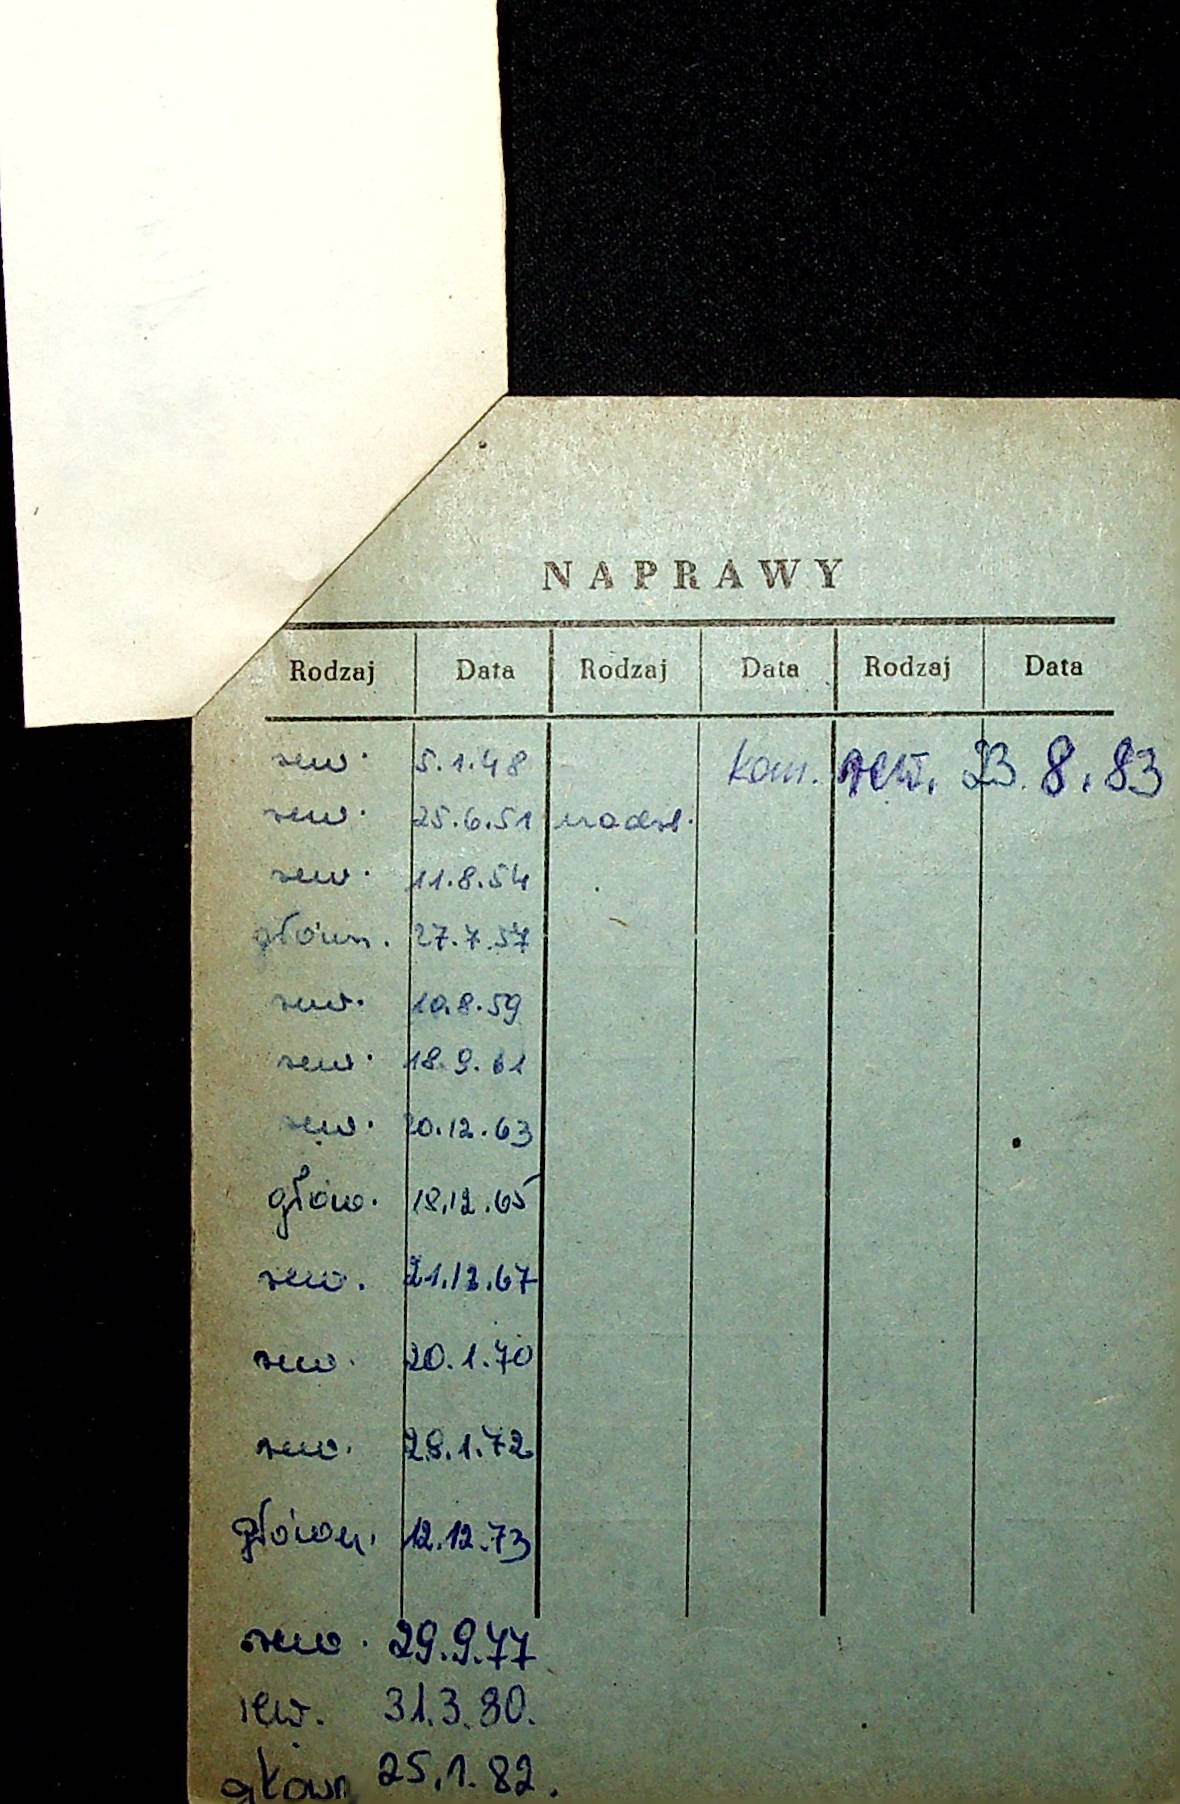 NAPRAWY
Rodzaj Data Rodzaj Data Rodzaj Data
rew. 5.1.48 kom. rew. 23.8.83
rew. 25.6.51 nadsł.
rew. 11.8.54
główn. 27.7.57
rew. 10.8.59
rew. 18.9.61
rew. 20.12.63
głów. 18.12.65
rew. 21.12.67
rew. 20.1.70
rew. 28.1.72
główn. 12.12.73
rew. 29.9.77
rew. 31.3.80.
główn 25.1.82.